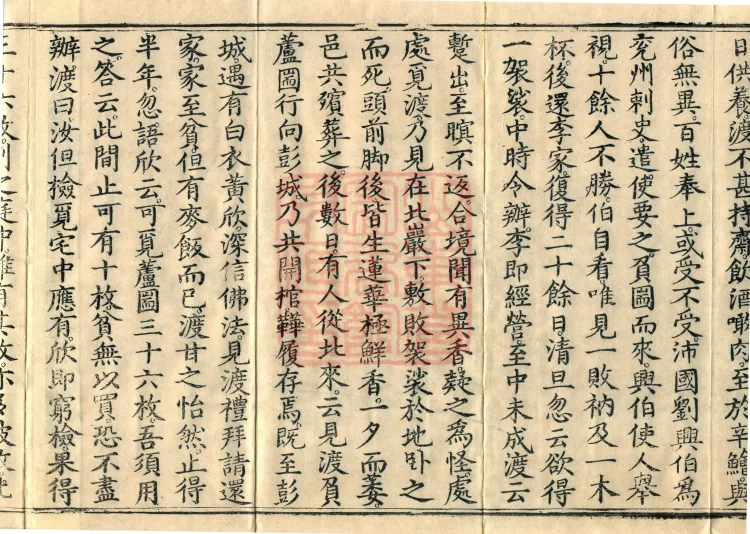 日供養渡不甚持齋飲酒噉肉至於辛鱠與
俗無異百姓奉上或受不受沛國劉興伯為
兖州刺史遣使要之負圌而來興伯使人舉
視十餘人不勝伯自看唯見一敗衲及一木
杯後還李家復得二十餘日清旦忽云欲得
一袈裟中時令辦李即經營至中未成渡云
蹔出至暝不返合境聞有異香疑之為怪處
處覓渡乃見在北巖下敷敗袈裟於地卧之
而死頭前脚後皆生蓮華極鮮香一夕而萎
邑共殯葬之後數日有人從北來云見渡負
蘆圌行向彭城乃共開棺鞾履存焉既至彭
城遇有白衣黃欣深信佛法見渡禮拜請還
家家至貧但有麥飯而已渡甘之怡然止得
半年忽語欣云可覓蘆圌三十六枚吾須用
之答云此間止可有十枚貧無以買恐不盡
辦渡曰汝但檢覓宅中應有欣即窮檢果得
三十六枚列之庭中雖有其數亦多破